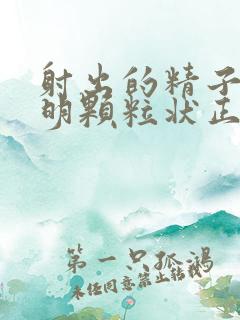 射出的精子
明颗粒状正
第一只孤鸿
未经同意禁止转载